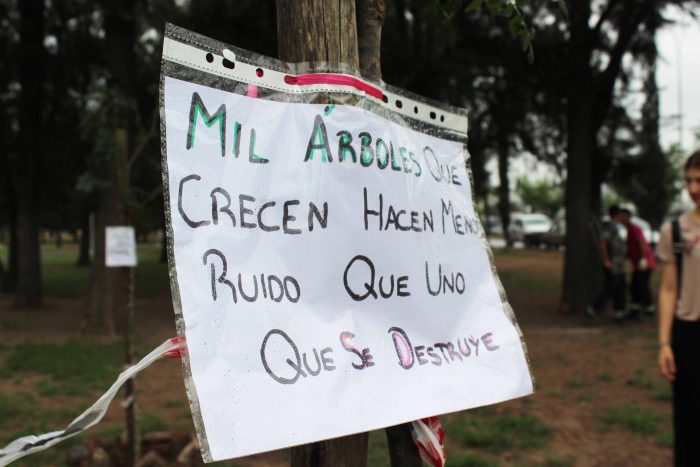 Mil Árboles Que
Crecen Hacen Meno
Ruido Que Uno
Que Se Destruye